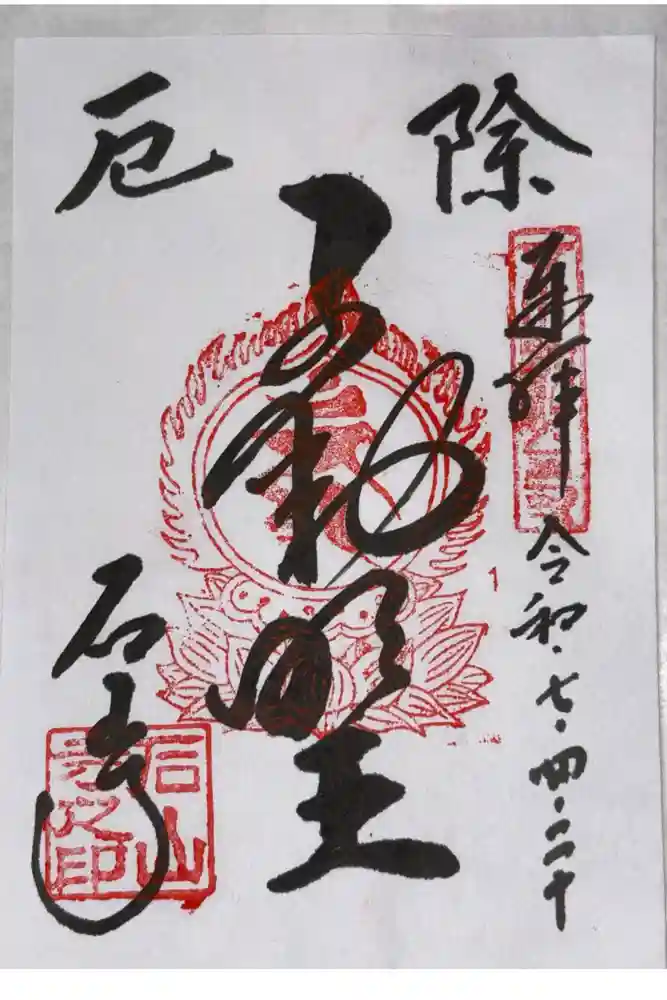 除厄
奉拝 令和・七・四・二十
不動明王
石山寺
石山寺之印